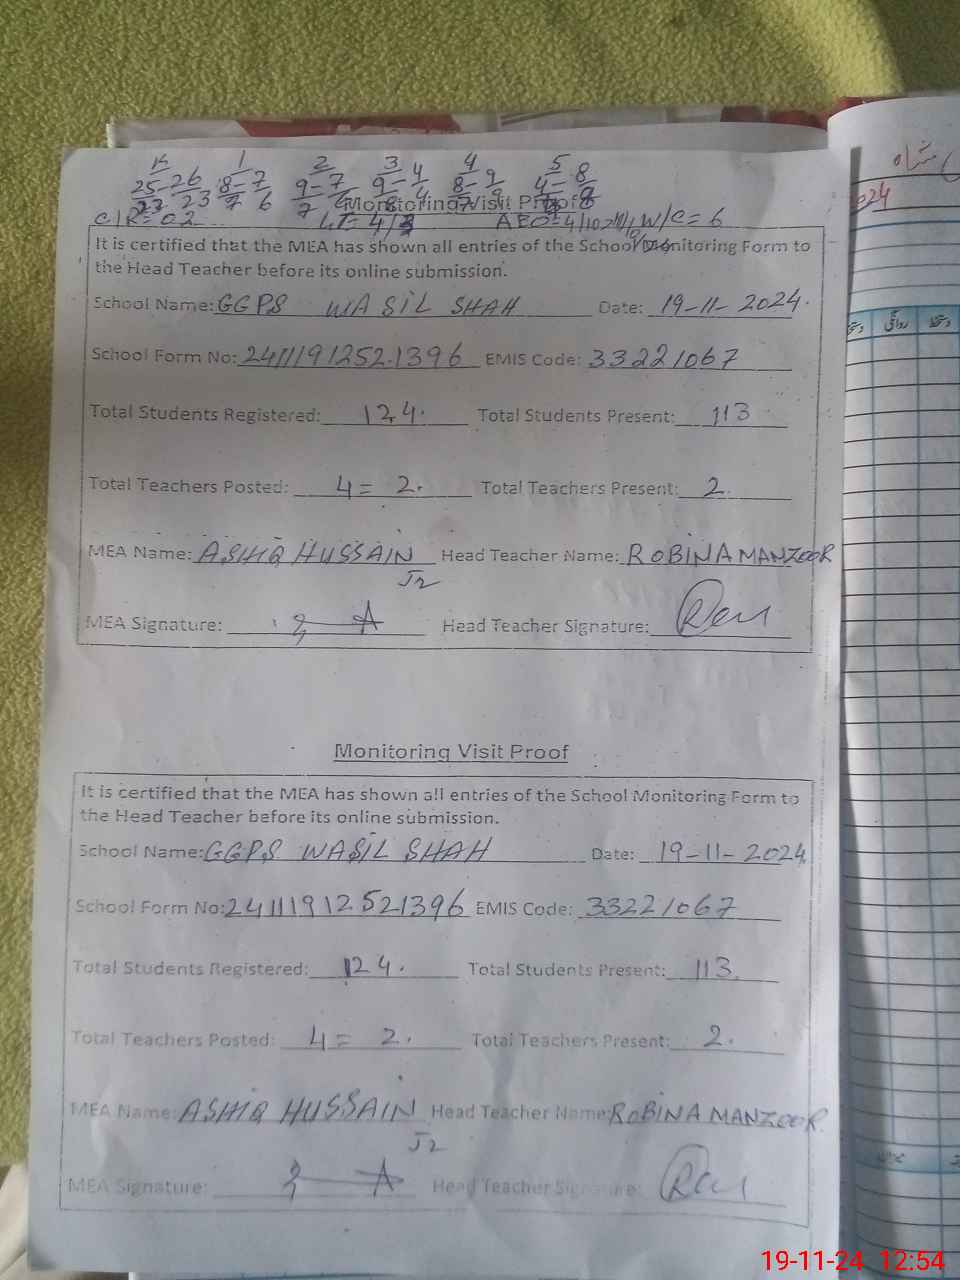 K 1 2 3 4 5
25-26 8-7 9-7 9-4 8-9 4-8
23 7 6 7 4 7 9 8
C/R= 02 LT= 4/3 AEO=4/10 W/C = 6
Monitoring Visit Proof
It is certified that the MEA has shown all entries of the School Monitoring Form to
the Head Teacher before its online submission.
School Name: GGPS WASIL SHAH Date: 19-11-2024.
School Form No: 24111912521396 EMIS Code: 33221067
Total Students Registered: 124. Total Students Present: 113
Total Teachers Posted: 4 = 2. Total Teachers Present: 2.
MEA Name: ASHIQ HUSSAIN Head Teacher Name: ROBINA MANZOOR
J2
MEA Signature: Head Teacher Signature:
Monitoring Visit Proof
It is certified that the MEA has shown all entries of the School Monitoring Form to
the Head Teacher before its online submission.
School Name: GGPS WASIL SHAH Date: 19-11-2024
School Form No: 24111912521396 EMIS Code: 33221067
Total Students Registered: 124. Total Students Present: 113.
Total Teachers Posted: 4 = 2. Total Teachers Present: 2.
MEA Name: ASHIQ HUSSAIN Head Teacher Name: ROBINA MANZOOR.
J2
MEA Signature: Head Teacher Signature:
شاہ
024
روانگی دستخط
19-11-24 12:54